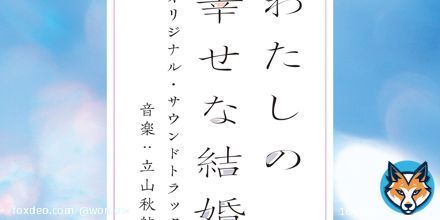 わたしの
幸せな結婚
オリジナル・サウンドトラック
音楽：立山秋
foxdeo.com